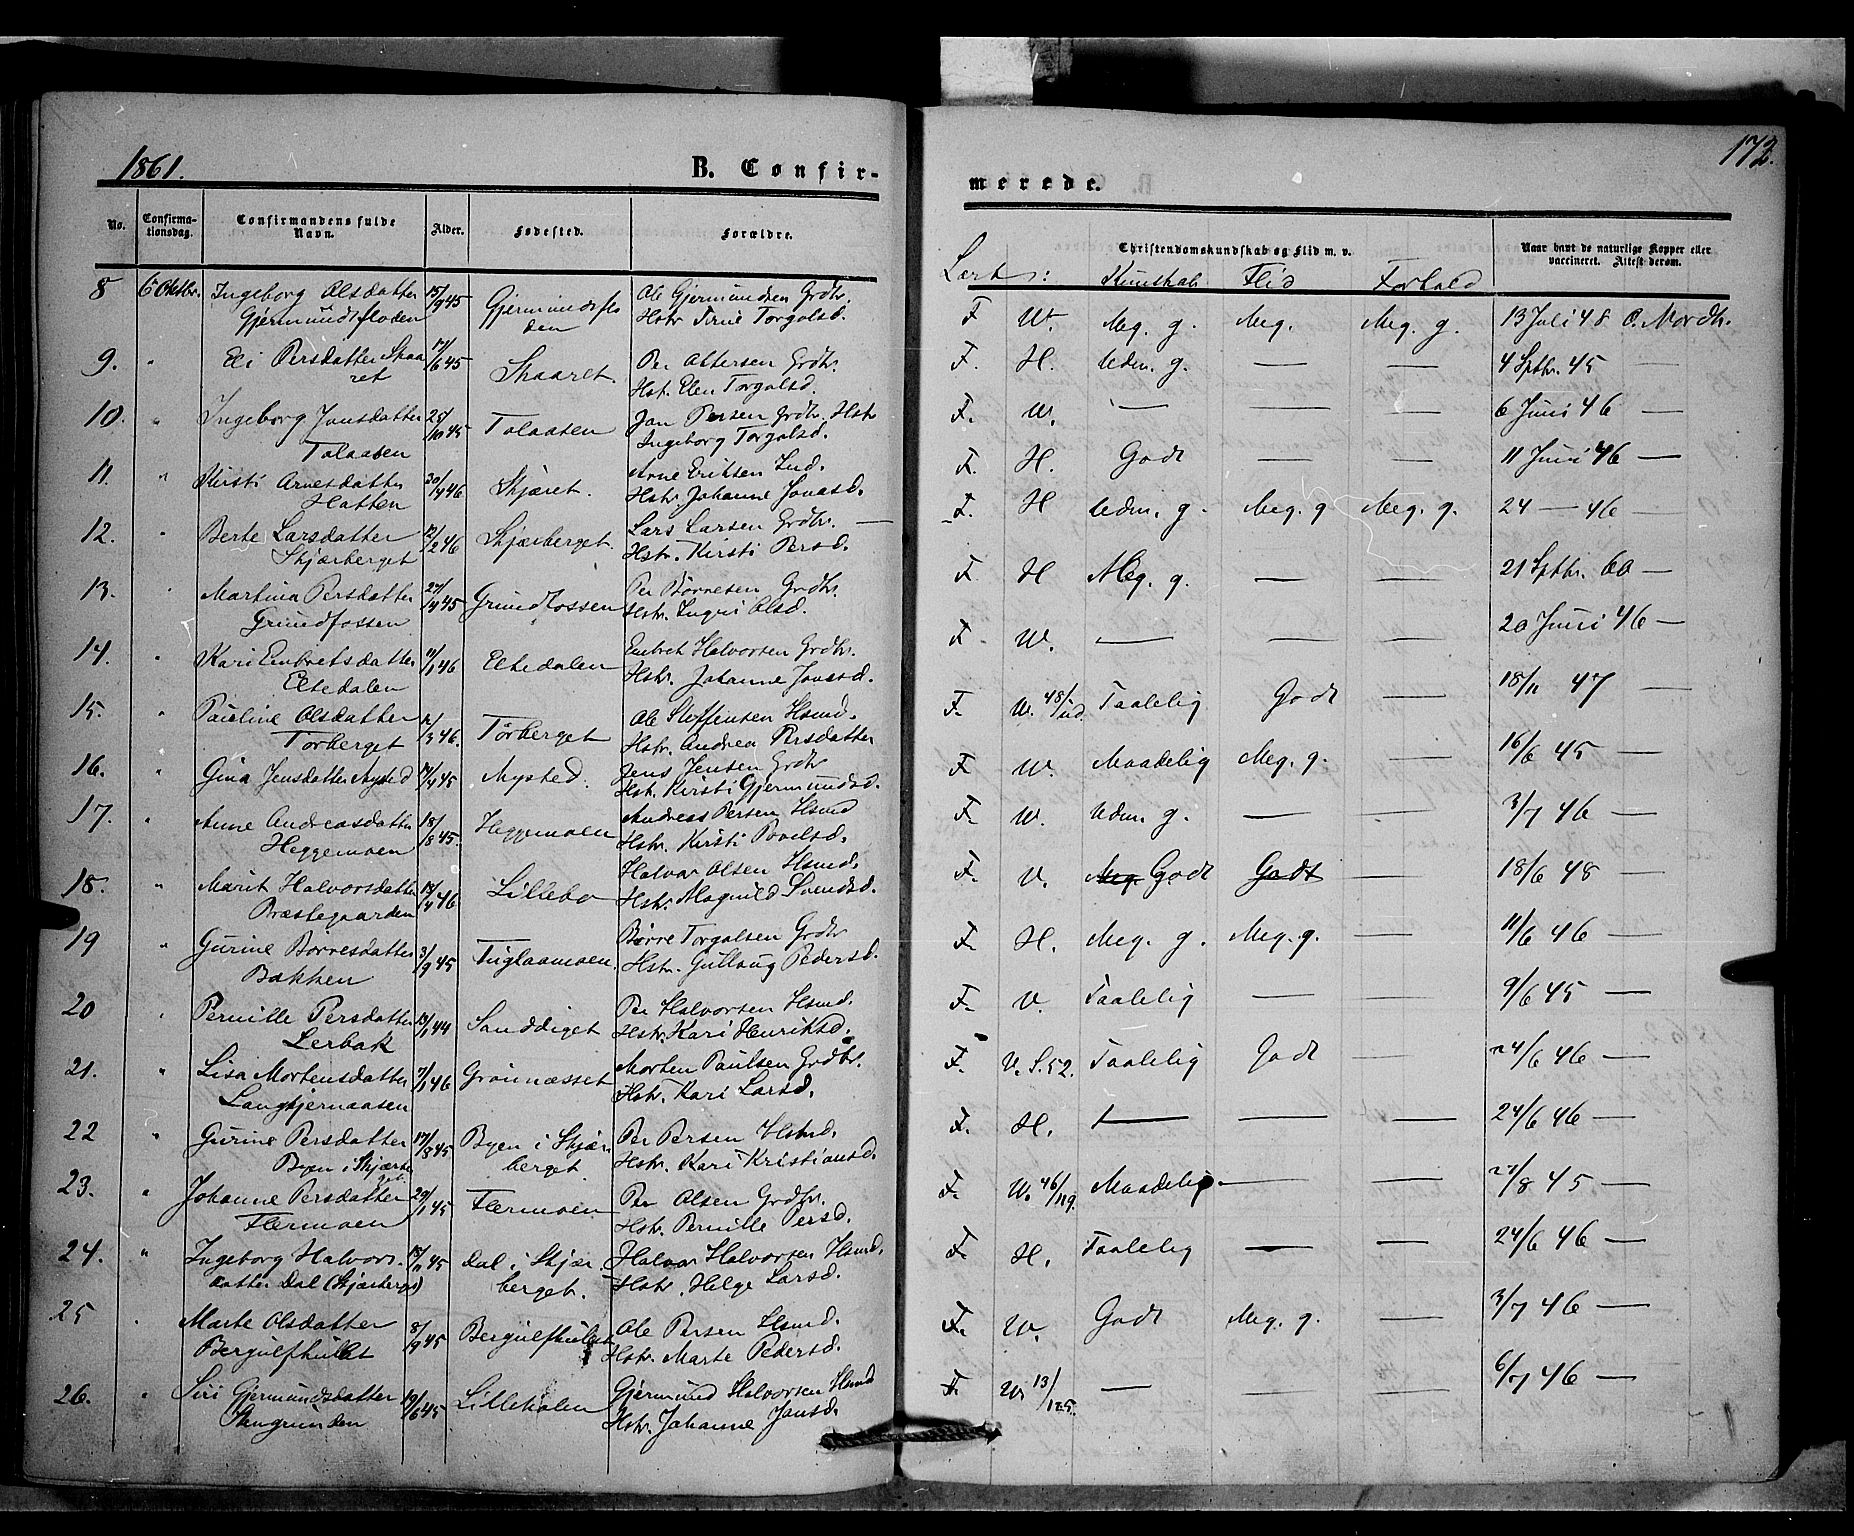 1861.
B. Confir-
No.
Confirma-
tionsdag.
Confirmandens fulde
Navn.
Alder.
Fødested.
Forældre.
8 6 Oktbr. Ingeborg Olsdatter 15/9 45 Gjermundsflo Ole Gjermundsen Grdbr.
Gjermundsfloden den Hstr Torgalsd.
9. " Eli Persdatter Skaa 17/6 45 Skaaret. Per Ottersen Grdbr.
ret Hstr. Elen Torgalsd.
10. " Ingeborg Jonsdatter 25/10 45 Talaasen Jon Persen Grdbr. Hstr
Talaasen Ingeborg Torgalsd.
11. " Kirsti Arnesdatter 20/4 46 Skjæret. Arne Eriksen Ind.
Hatten Hstr. Johanne Jonasd.
12. " Berte Larsdatter 12/2 46 Skjærberget. Lars Larsen Grdbr. —
Skjærberget Hstr. Kirsti Persd.
13. " Martina Persdatter 27/4 45 Grundfossen Per Börresen Grdbr.
Grundfossen Hstr. Ingri Olsd.
14. " Kari Embretsdatter 11/1 46 Eltedalen Embret Halvorsen Grdbr.
Eltedalen Hstr. Johanne Jonasd.
15. " Pauline Olsdatter 12/3 46. Törberget Ole Steffensen Hsmd.
Törberget Hstr. Andrea Persdatter
16. " Gina Jensdatter Nysted 45 Nysted. Jens Jensen Grdbr
Hstr. Kirsti Gjermundsd.
17. " Anne Andreasdatter 18/8 45. Heggemoen Andreas Persen Hsmd
Heggemoen Hstr. Kirsti Povelsd.
18. " Marit Halvorsdatter 46 Lillebo Halvor Olsen Hsmd.
Præstegaarden Hstr. Magnild Svendsd.
19 " Gurine Börresdatter 3/9 45 Börre Torgalsen Grdbr
Bakken Hstr. Gullaug Pedersd.
20 " Pernille Persdatter 13/1 44 Sanddiget Per Halvorsen Hsmd.
Lerbak Hstr. Kari Henriksd.
21. " Lisa Mortensdatter 7/1 46 Grönnæsset Morten Paulsen Grdbr.
Langtjernaasen Hstr. Kari Larsd.
22 " Gurine Persdatter 17/8 45 Byen i Skjær Per Persen Hsmd.
Byen i Skjærber berget. Hstr. Kari Kristiansd.
get
23. " Johanne Persdatter 29/1 45 Flermoen Per Olsen Grdbr.
Flermoen Hstr. Pernille Persd.
24. " Ingeborg Halvors. 15/11 45 Dal i Skjær. Halvor Halvorsen Hsmd.
datter Dal (Skjærberget) berget. Hstr. Helge Larsd.
25 " Marte Olsdatter 8/9 45 Bergulfhullet Ole Persen Hsmd.
Bergulfhullet Hstr. Marte Pedersd.
26. " Siri Gjermundsdatter 19/6 45 Lilleholen Gjermund Halvorsen Hsmd
Hstr. Johanne Jonsd.
172.
merede.
Christendomskundskab og Flid m. v.
Naar havt de naturlige Kopper eller
vaccineret. Attest derom.
Lært: Kundskab Flid Forhold
F W. Meg. g. Meg. Meg. g. 13 Juli 48 O. Nordh.
F. H. Udm. g. — — 4 Sptbr. 45 —
F. W. — — — 6 Juni 46 —
F. H. Godt — — 11 Juni 46 —
F. H Udm. g. Meg. g Meg. g. 24 — 46 —
F. H Meg. g. — — 21 Sptbr. 60 —
F. W. — — — 20 Juni 46 —
F. W. 48/ud. Taalelig Godt — 18/11 47 —
F. W. Maadelig Meg. g. — 16/6 45 —
F. W. Udm. g. — — 3/7 46 —
F. V. Meg. Godt Godt — 18/6 48 —
F. H. Meg. g. Meg. g. — 11/6 46 —
F. V. Taalelig — — 9/6 45 —
F. V. S. 52. Taalelig Godt — 24/6 46 —
F. H. — — — 24/6 46 —
F. W. 46/119. Maadelig — — 27/8 45 —
F. H. Taalelig — — 24/6 46 —
F. W. Godt Meg. g. — 3/7 46 —
F. W. 13/125. — — — 6/7 46 —